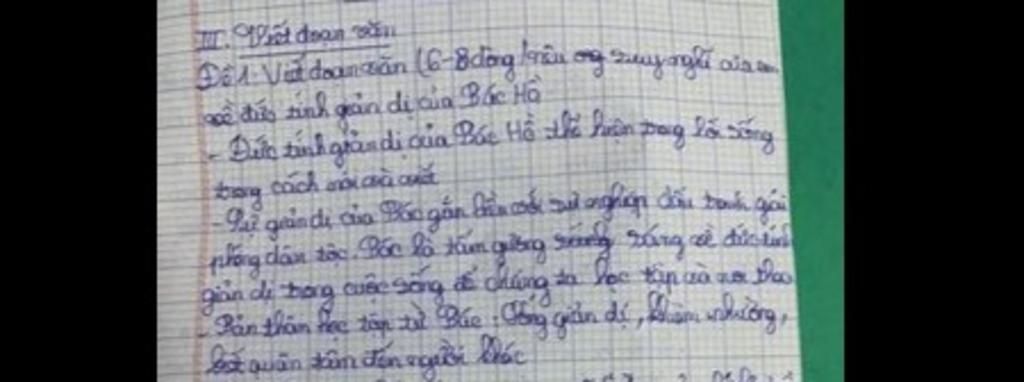 III. Viết đoạn văn
Đề 1. Viết đoạn văn (6-8 dòng) nêu suy nghĩ của em
về đức tính giản dị của Bác Hồ
- Đức tính giản dị của Bác Hồ thể hiện trong lối sống
trong cách nói và viết
- Sự giản dị của Bác gắn liền với sự nghiệp đấu tranh giải
phóng dân tộc. Bác là tấm gương sáng về đức tính
giản dị trong cuộc sống để chúng ta học tập và noi theo
- Bản thân học tập từ Bác: Sống giản dị, khiêm nhường,
biết quan tâm đến người khác